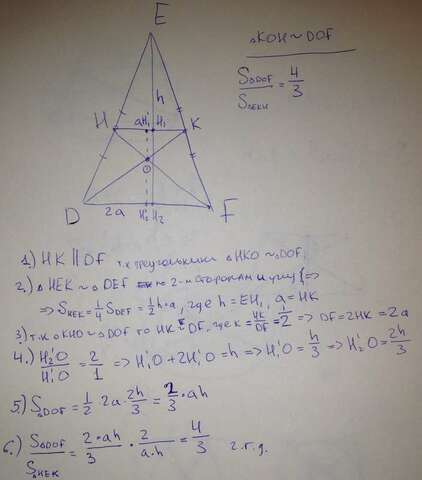 E
△KOH ~ DOF
S△DOF / S△EKH = 4/3
h
H a H₁' H₁ K
O
D 2a H₂' H₂ F
1.) HK || DF т.к треугольники △HKO ~ △DOF,
2.) △HEK ~ △DEF по 2-м сторонам и углу (⇒
⇒ S HEK = 1/4 S DEF = 1/2 h·a, где h = EH₁, a = HK
3) т.к △KHO ~ △DOF то HK DF, где к = HK/DF = 1/2 ⇒ DF = 2HK = 2a
4.) H₂'O / H₁'O = 2/1 ⇒ H₁'O + 2H₁'O = h ⇒ H₁'O = h/3 ⇒ H₂'O = 2h/3
5.) S△DOF = 1/2 · 2a · 2h/3 = 2/3 · ah
6.) S△DOF / S△HEK = 2·ah/3 · 2/a·h = 4/3 ч.т.д.